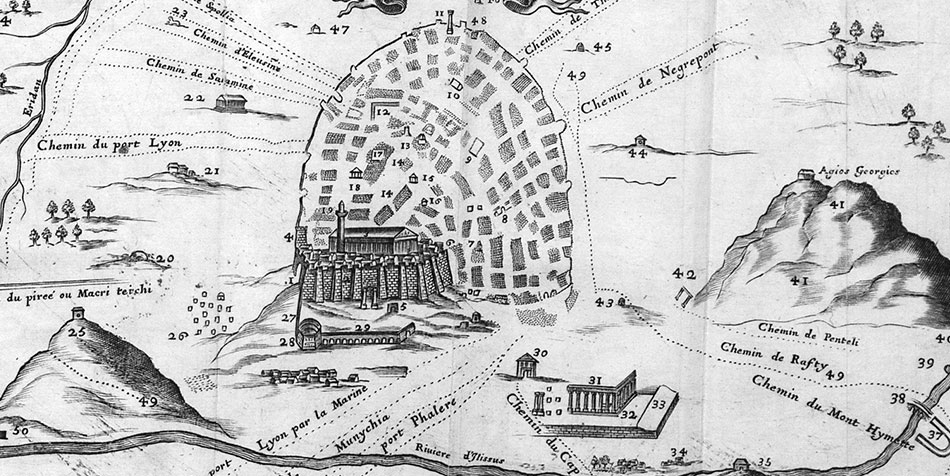 11
48
de Spollia
Chemin
47
23
Chemin d'Eleusine
Chemin de Salamine
45
49
Chemin de Negrepont
22
10
12
Eridan
Chemin du port Lyon
13
44
17
9
14
21
18
15
14
16
Agios Georgios
41
19
8
7
20
41
42
du pireé ou Macri teichi
1
5
43
26
25
29
28
30
Chemin de Penteli
Chemin de Rafty
49
39
31
Chemin du Mont Hymette
49
32
33
38
Lyon par la Marine
Munychia
port Phalere
37
50
Chemin du Cap
port
Riviere d'Ilissus
34
35